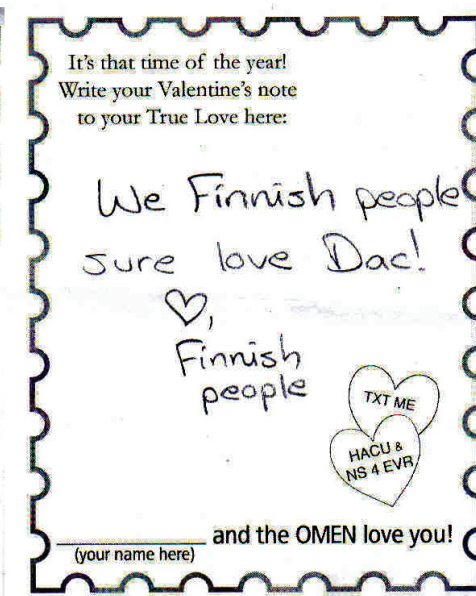 It's that time of the year!
Write your Valentine's note
to your True Love here:
We Finnish people
sure love Dac!
♡,
Finnish
people
TXT ME
HACU &
NS 4 EVR
and the OMEN love you!
(your name here)